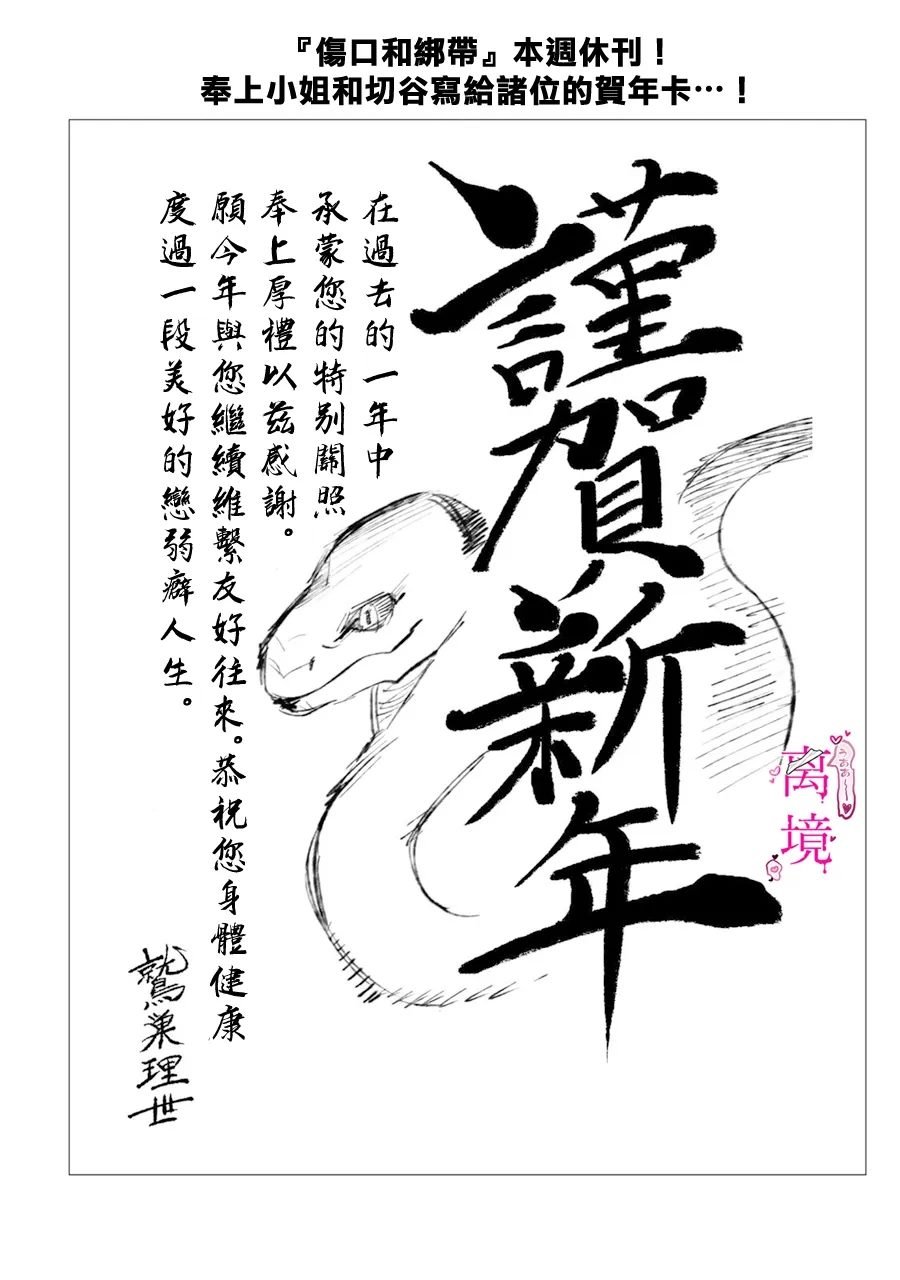 『傷口和綁帶』本週休刊！
奉上小姐和切谷寫給諸位的賀年卡…！
謹賀新年
在過去的一年中
承蒙您的特別關照
奉上厚禮以茲感謝。
願今年與您繼續維繫友好往來。恭祝您身體健康
度過一段美好的戀弱癖人生。
鷲巣理世
うああ〜♥
离境